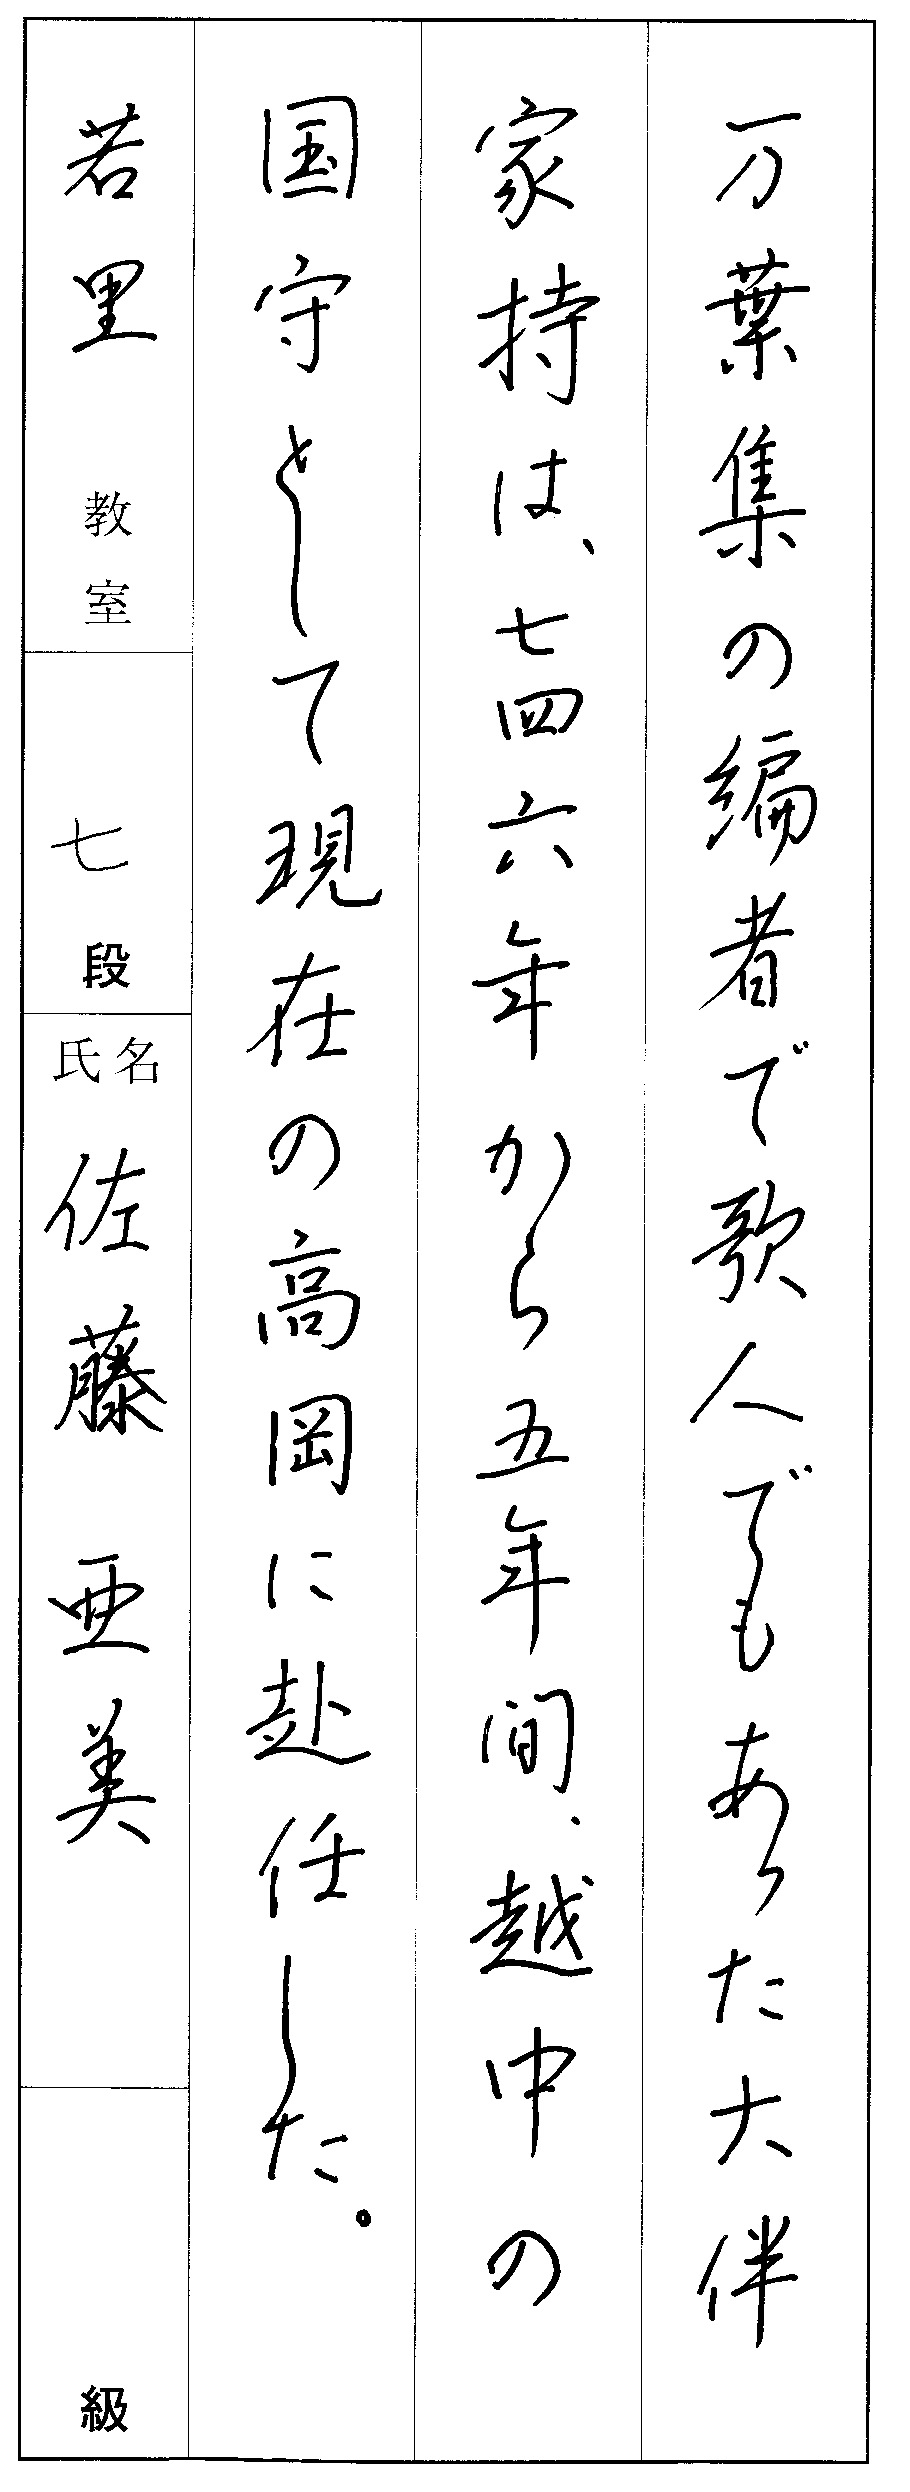 万葉集の編者で歌人でもあった大伴
家持は、七四六年から五年間、越中の
国守として現在の高岡に赴任した。
若里 教室
七 段
氏名 佐藤 亜美
級